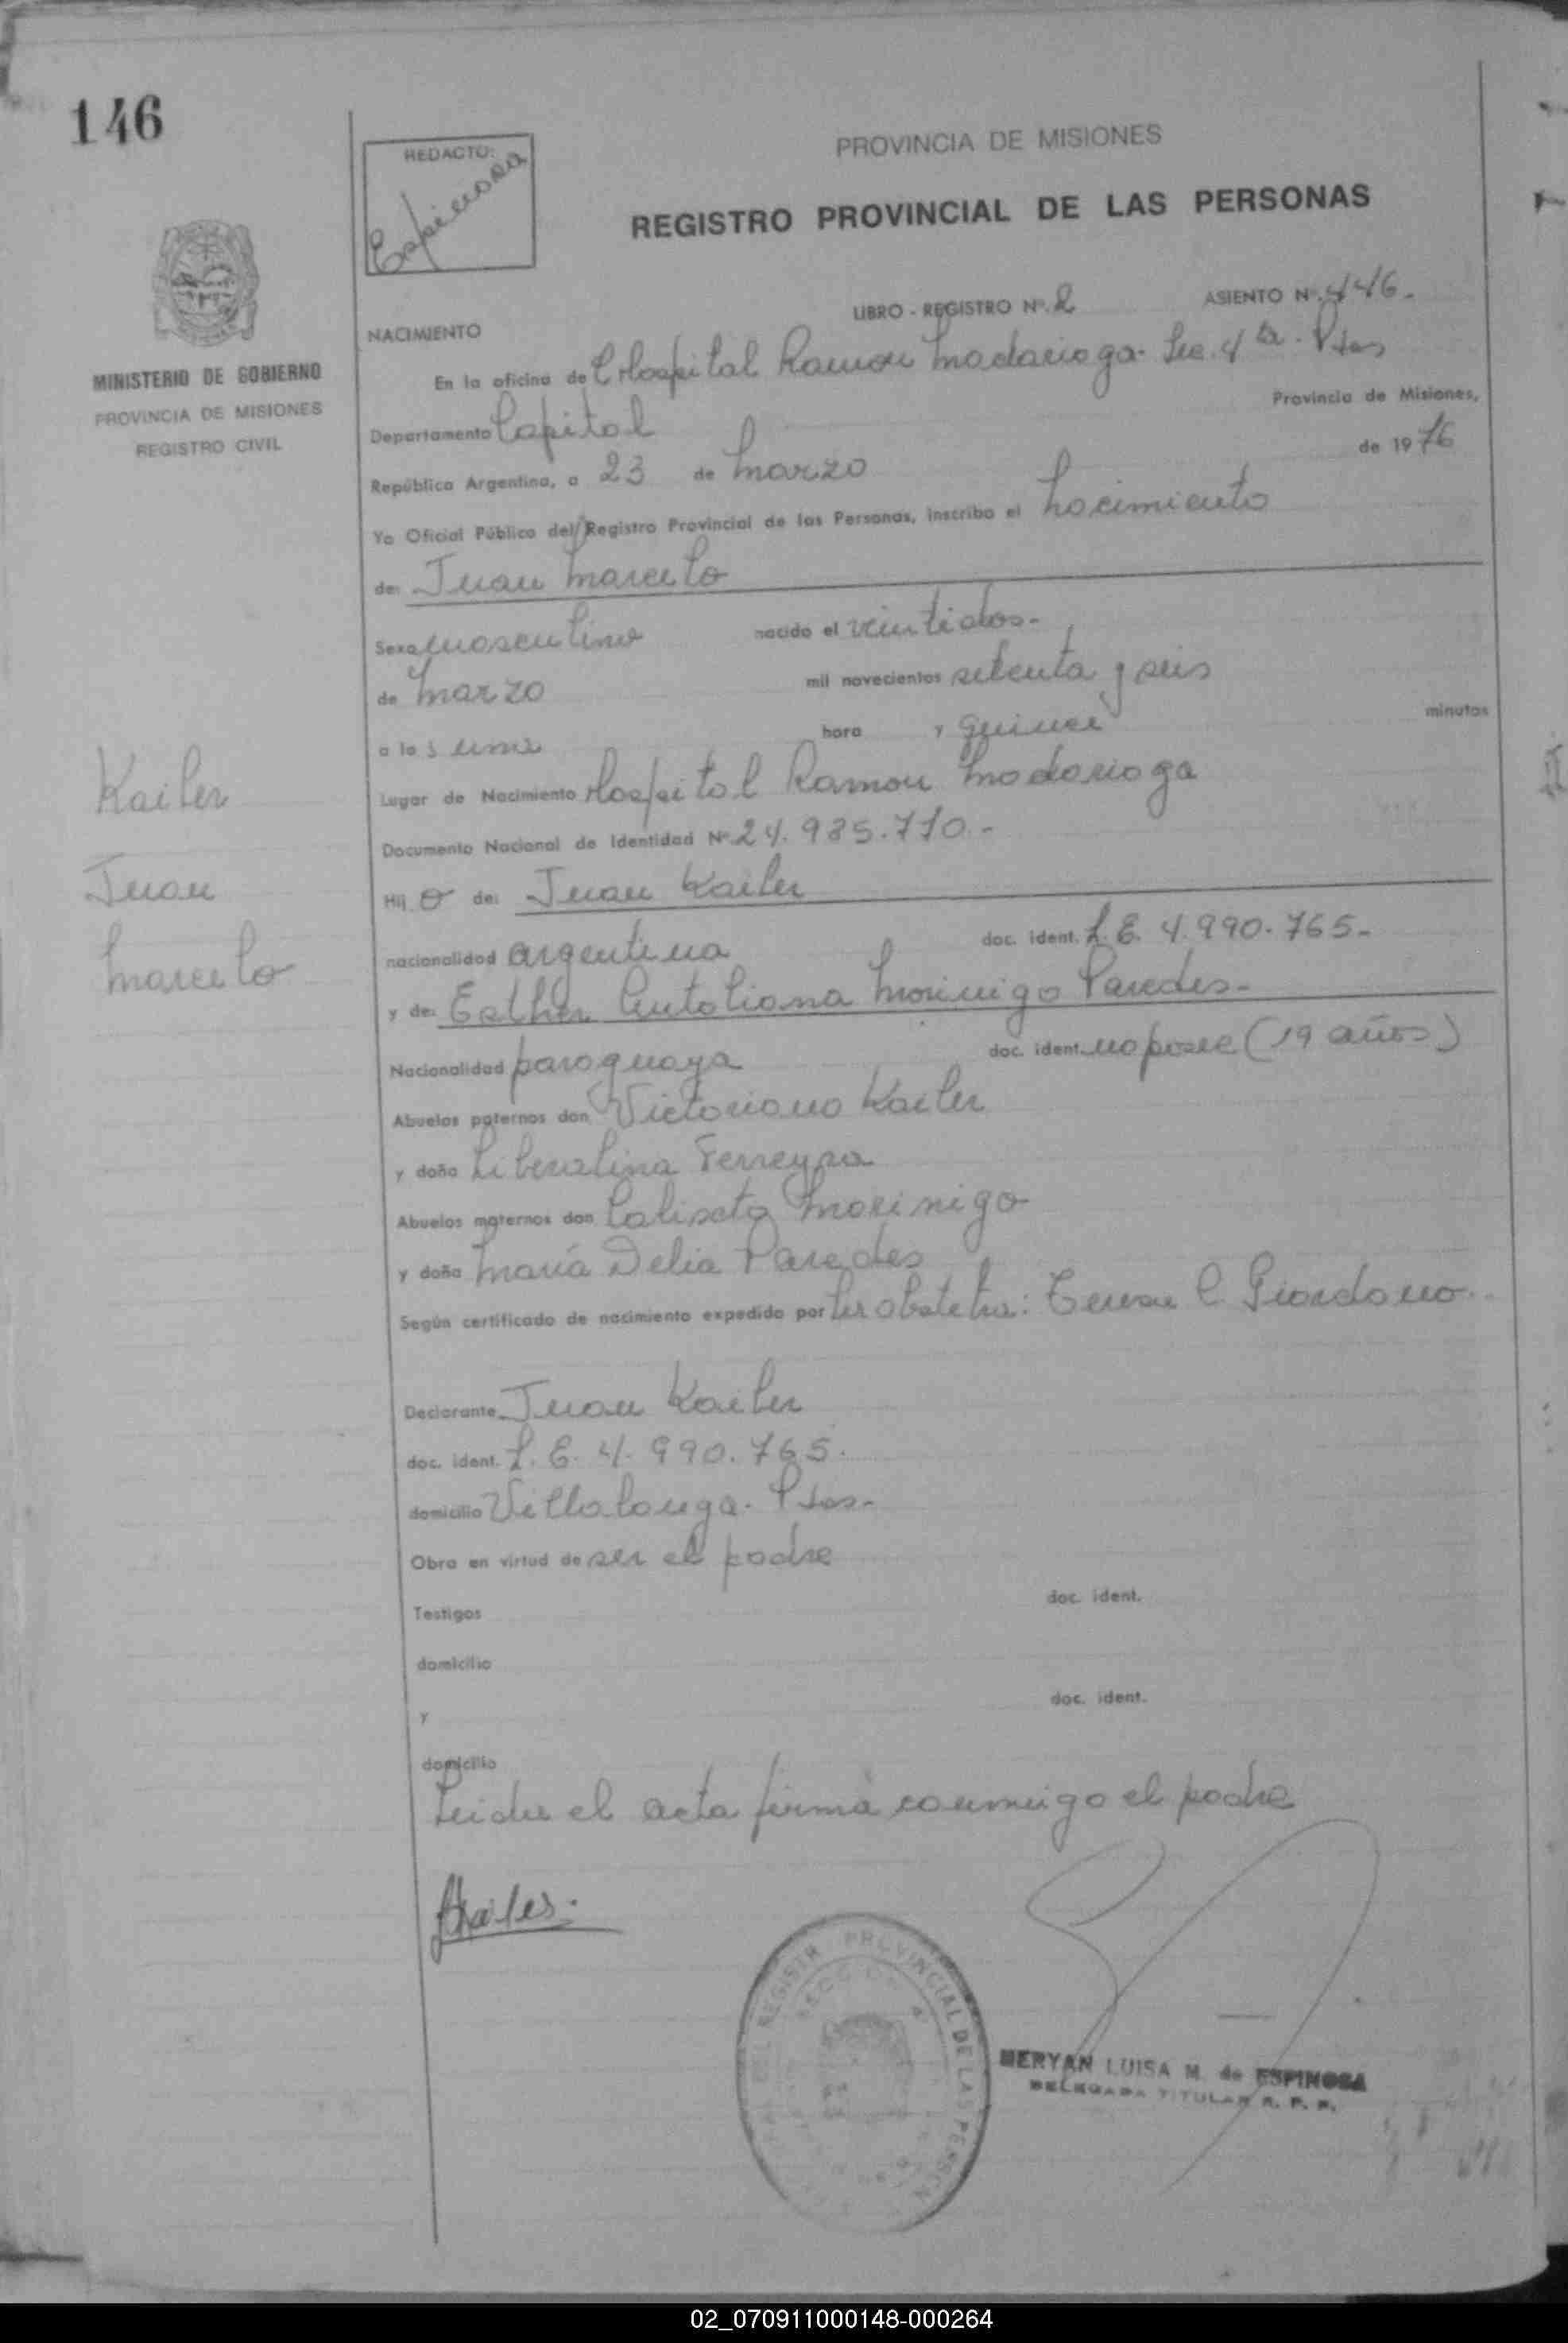 146
REDACTO:
Espinosa
PROVINCIA DE MISIONES
REGISTRO PROVINCIAL DE LAS PERSONAS
MINISTERIO DE GOBIERNO
PROVINCIA DE MISIONES
REGISTRO CIVIL
LIBRO - REGISTRO Nº. 2 ASIENTO Nº. 446.-
NACIMIENTO
En la oficina de Hospital Ramon Madariaga. Sec. 4ta. Pdas
Departamento Capital Provincia de Misiones,
República Argentina, a 23 de Marzo de 1976
Yo Oficial Público del Registro Provincial de las Personas, inscribo el nacimiento
de: Juan Marcelo
Sexo masculino nacido el veintidos.-
de Marzo mil novecientos setenta y seis
a la s una hora y quince minutos
Lugar de Nacimiento Hospital Ramon Madariaga
Documento Nacional de Identidad Nº 24.985.710.-
Hij o de: Juan Kailer
nacionalidad argentina doc. ident. L.E. 4.990.765.-
y de: Esther Antoliana Morinigo Paredes.-
Nacionalidad paraguaya doc. ident. no posee (19 años)
Abuelos paternos don Victoriano Kailer
y doña Liberalina Ferreyra
Abuelos maternos don Calixto Morinigo
y doña María Delia Paredes
Según certificado de nacimiento expedido por obstetra: C Giordano.
Kailer
Juan
Marcelo
Declarante Juan Kailer
doc. ident. L.E. 4.990.765.
domicilio Villalonga. Pdas.-
Obra en virtud de ser el padre
Testigos doc. ident.
domicilio
y doc. ident.
domicilio
Leida el acta firma conmigo el padre
JKailer.
REGISTR PROVINCIAL DE LAS PERSON
MERYAN LUISA M. de ESPINOSA
DELEGADA TITULAR R. P. P.
02_070911000148-000264